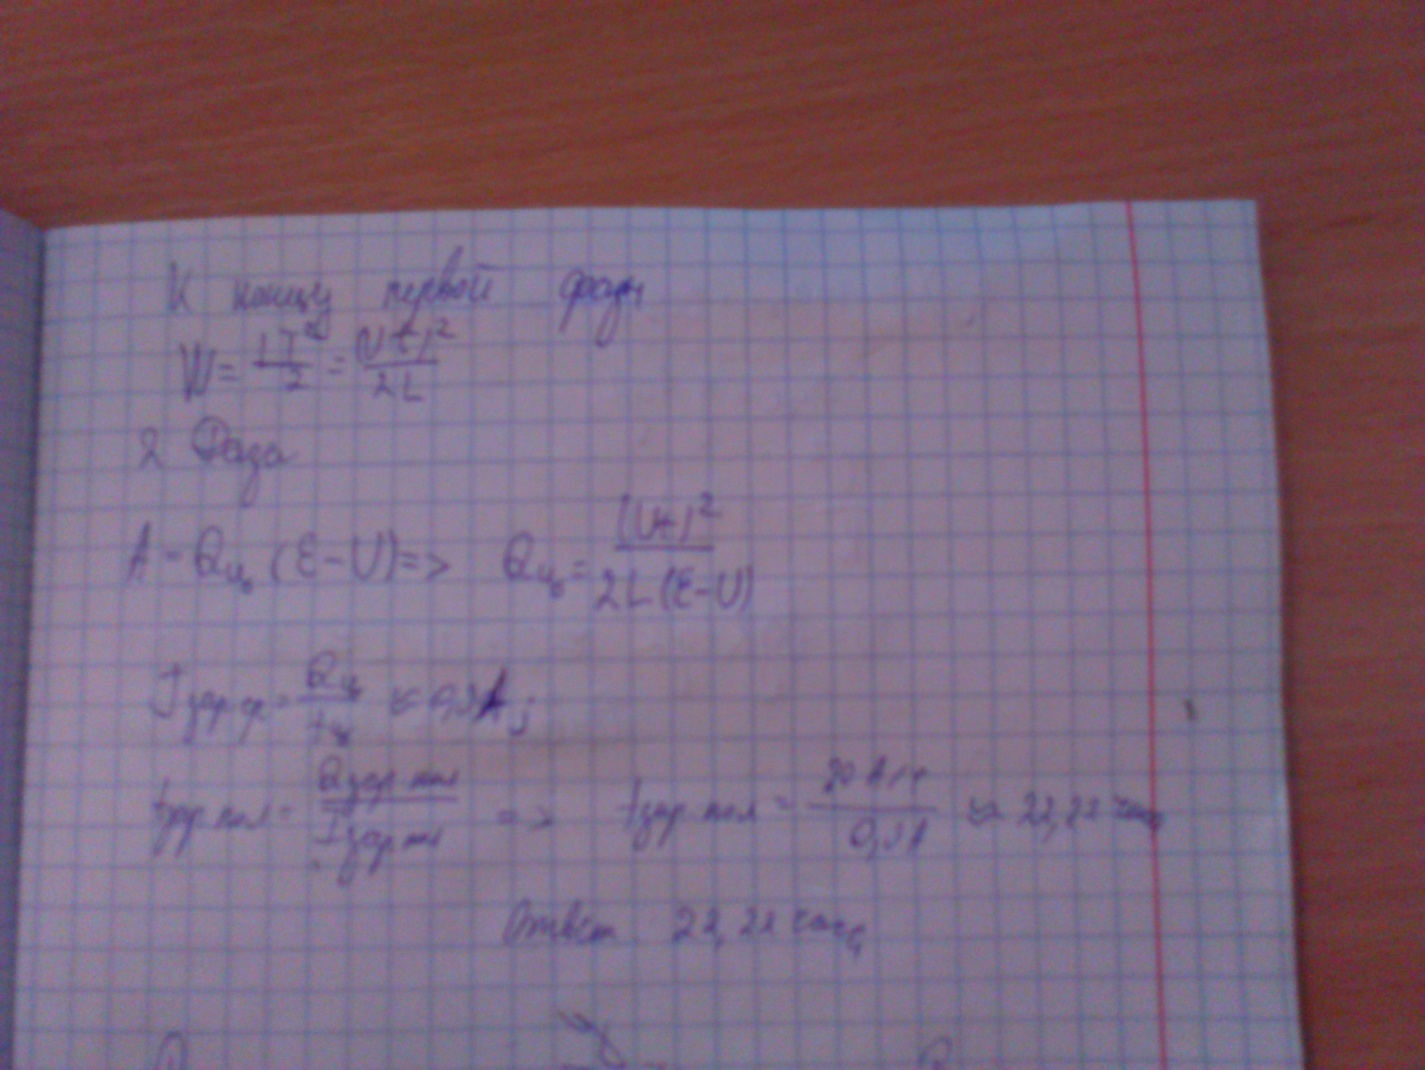 К концу первой фазы
W = LI²/2 = (Ut)²/2L
2 Фаза
A = Qц (Ɛ-U) => Qц = (Ut)²/2L(Ɛ-U)
I зар ср = Qц/tц ≈ 0,9A;
t зар пол = Q зар пол/I зар => t зар пол = 20 А·ч/0,9А ≈ 22,22 часа
Ответ 22,22 часа